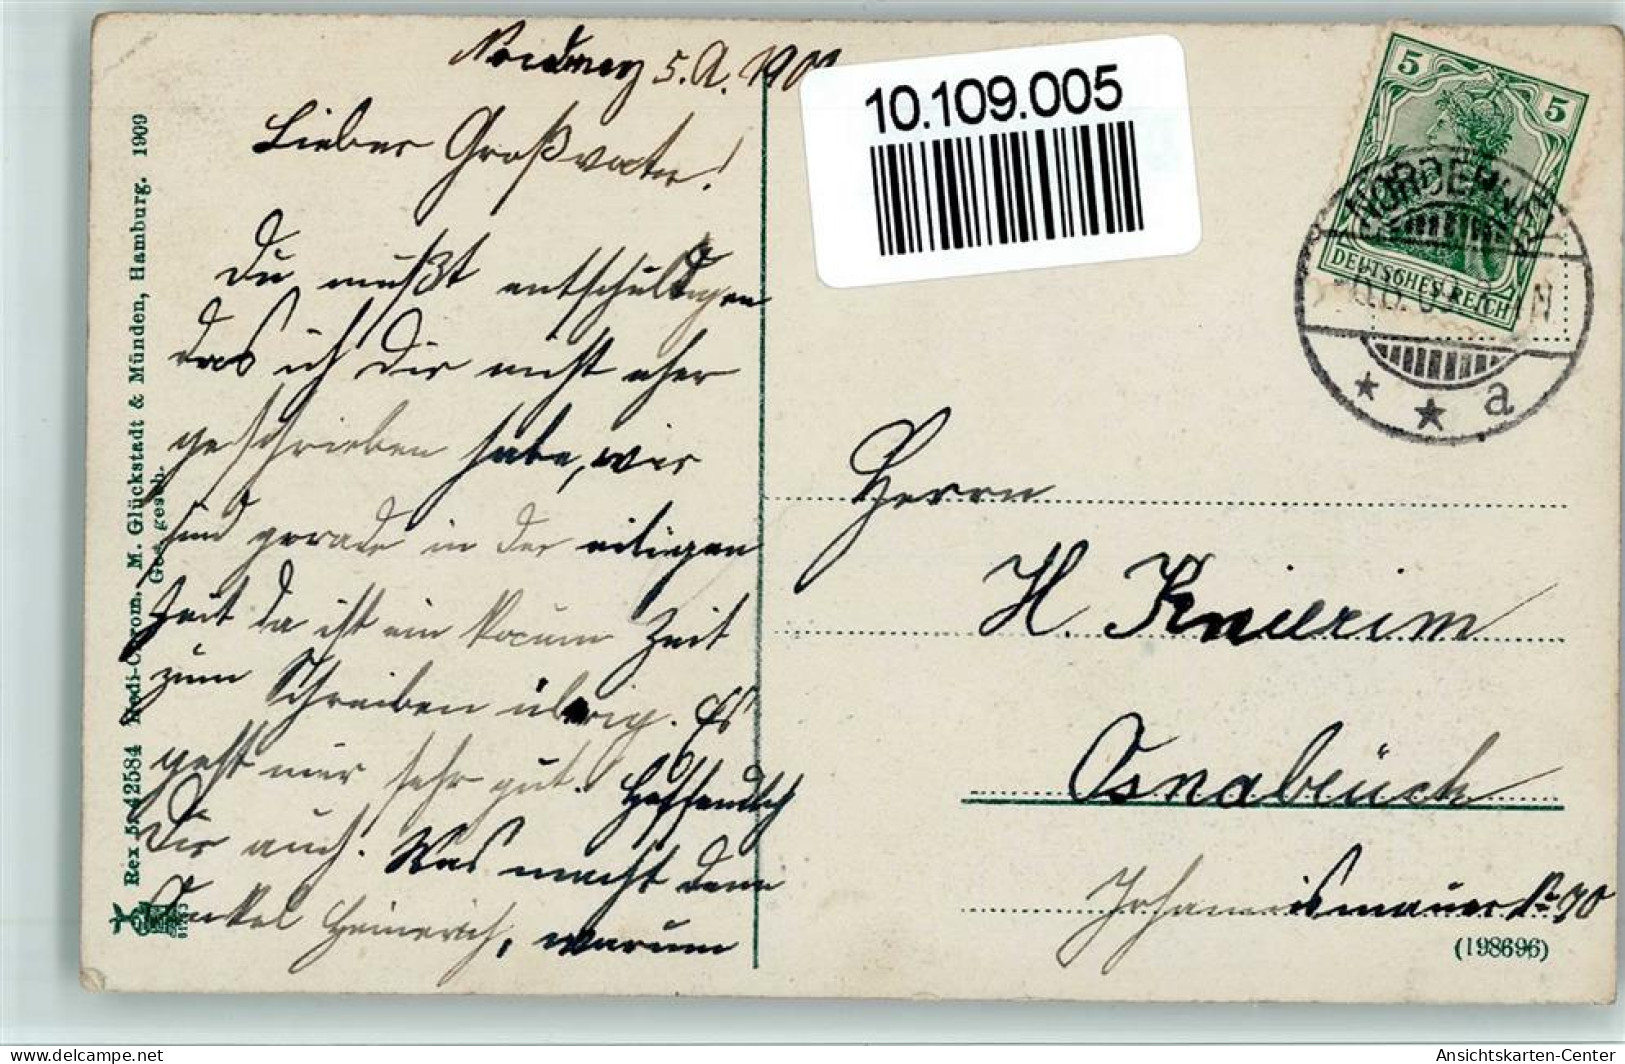 5. A. 190
Lieber Großvater!
Du mußt entschuldigen
das ich Dir nicht eher
geschrieben habe, wir
sind gerade in der eiligen
Zeit da ist ein kaum Zeit
zum Schreiben übrig. Es
geht mir sehr gut. Hoffendlich
Dir auch. Was macht denn
Onkel Heinerich, warum
Rex 5 42584 Kredi-Chrom. M. Glückstadt & Münden, Hamburg. 1909
Ges. gesch.
10.109.005
5 5
DEUTSCHES REICH
NORDERN
N
* * a
Herrn
H. Knierim
Osnabrück
Johannismauer No 90
(198696)
delcampe.net
Ansichtskarten-Center